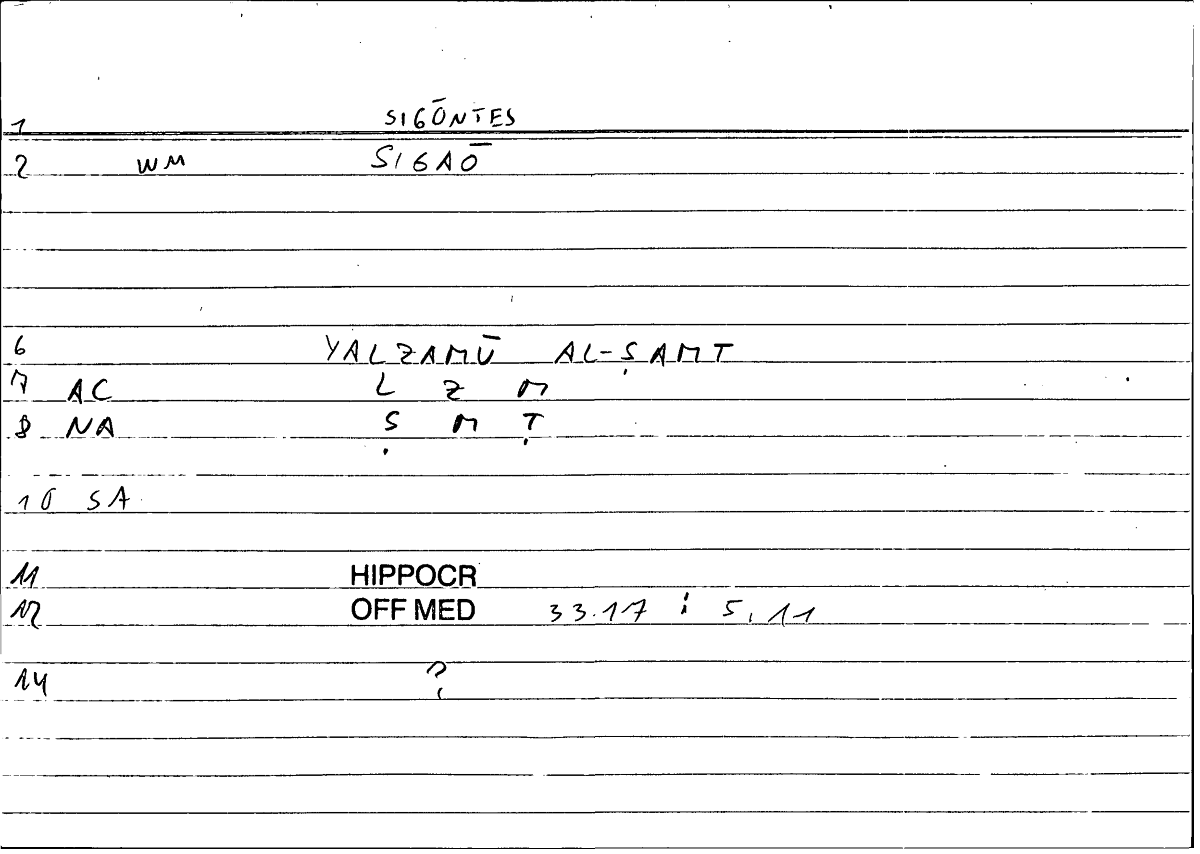 1 SIGŌNTES
2 WM SIGAŌ
6 YALZAMŪ AL-ṢAMT
7 AC L Z M
8 NA Ṣ M Ṭ
10 SA
11 HIPPOCR
12 OFF MED 33.17 : 5,11
14 ?